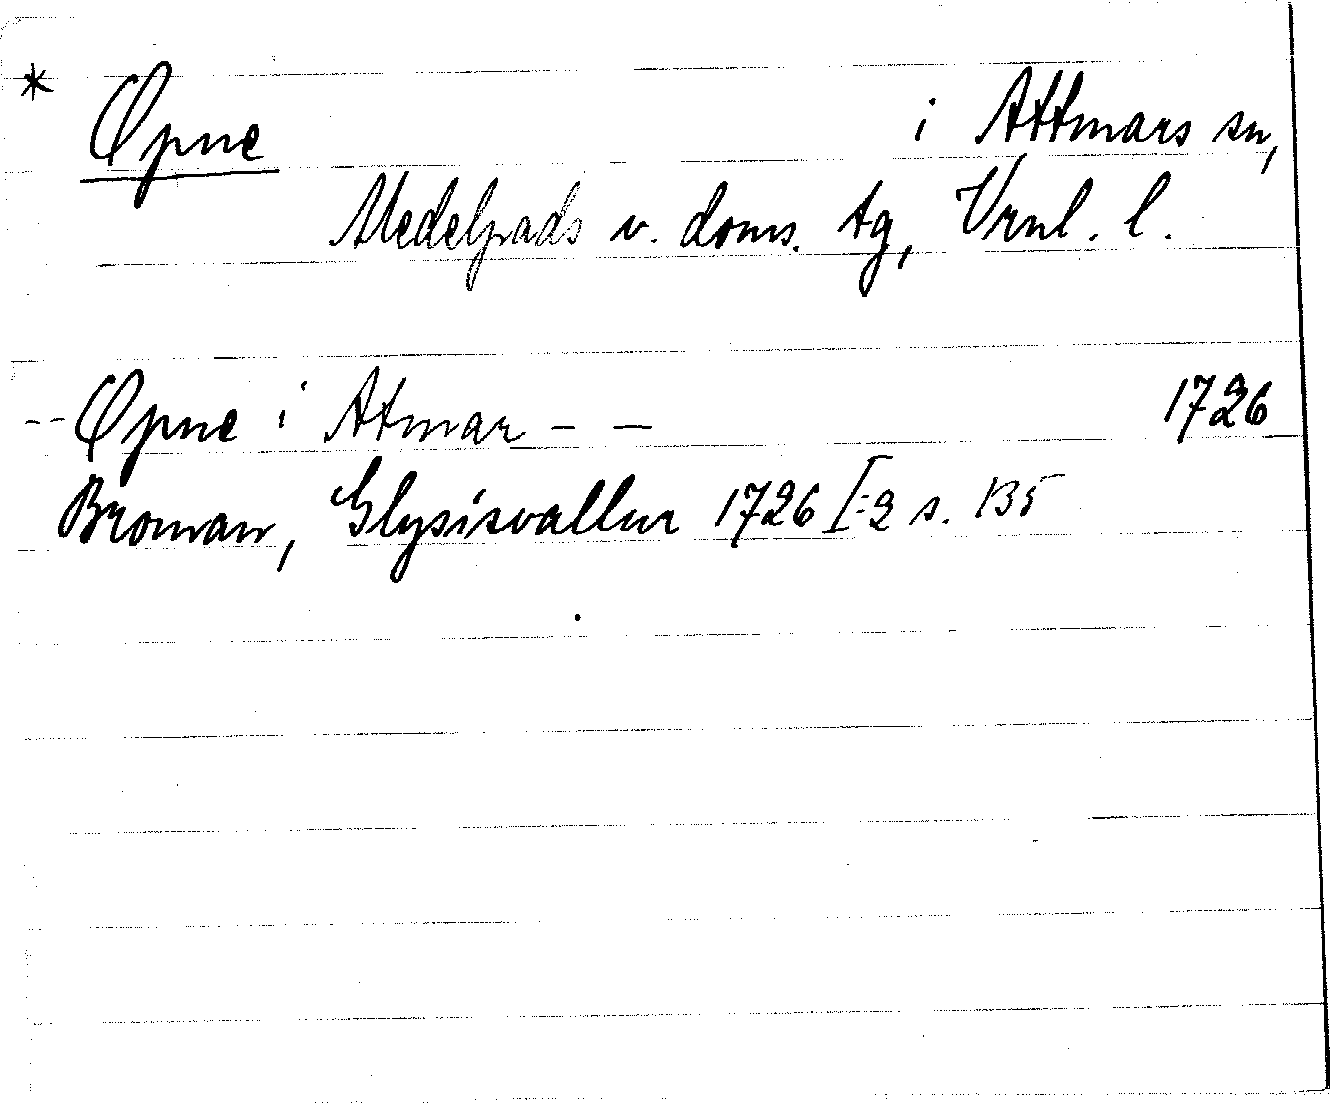 * Øpne i Attmars sn,
Medelpads v. doms. tg, Vrnl. l.
-- Øpne i Atmar - - 1726
Broman, Glysisvallur 1726 I:2 s. 135